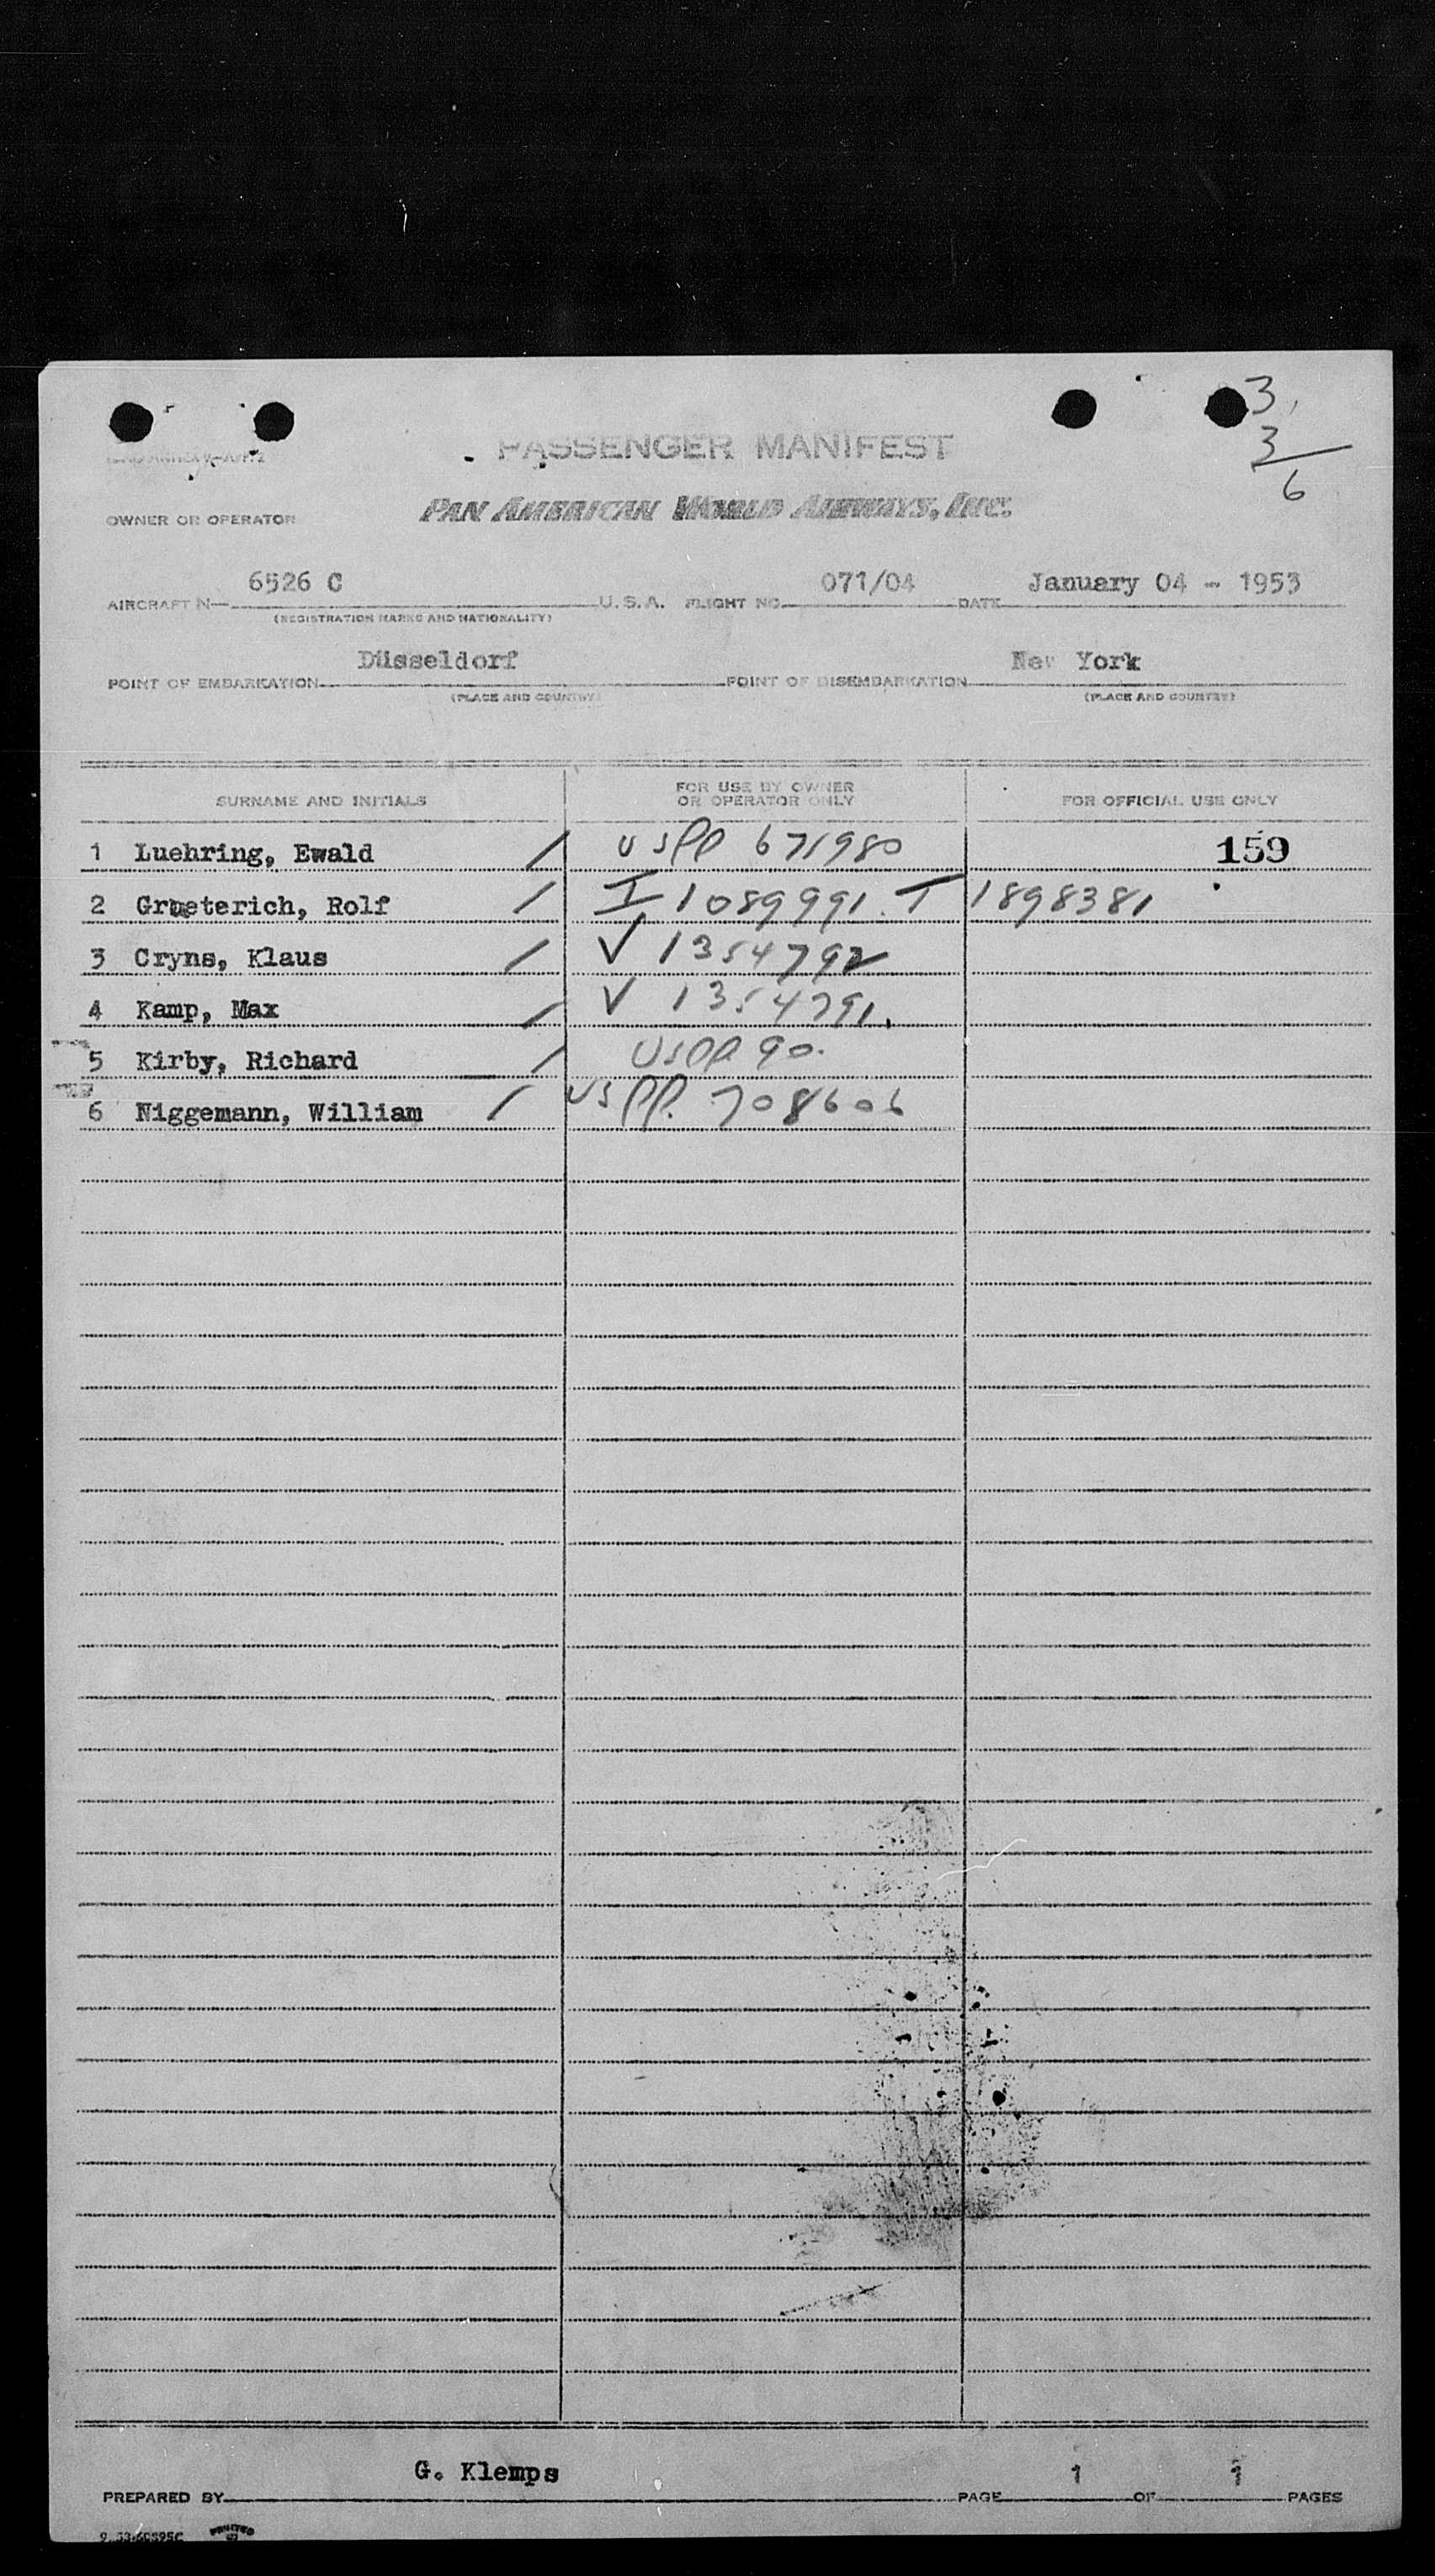 3
3
6
PASSENGER MANIFEST
OWNER OR OPERATOR PAN AMERICAN WORLD AIRWAYS, INC.
6526 C 071/04 January 04 - 1953
AIRCRAFT N— U.S.A. FLIGHT NO. DATE
(REGISTRATION MARKS AND NATIONALITY)
Düsseldorf New York
POINT OF EMBARKATION POINT OF DISEMBARKATION
(PLACE AND COUNTRY) (PLACE AND COUNTRY)
SURNAME AND INITIALS FOR USE BY OWNER OR OPERATOR ONLY FOR OFFICIAL USE ONLY
1 Luehring, Ewald / USPP 671980 159
2 Grueterich, Rolf / I 1089991. T 1898381
3 Cryns, Klaus / V 1354792
4 Kamp, Max / V 1354791.
5 Kirby, Richard / USPP 90.
6 Niggemann, William / US PP. 708606
G. Klemps 1 1
PREPARED BY PAGE OF PAGES
PRINTED